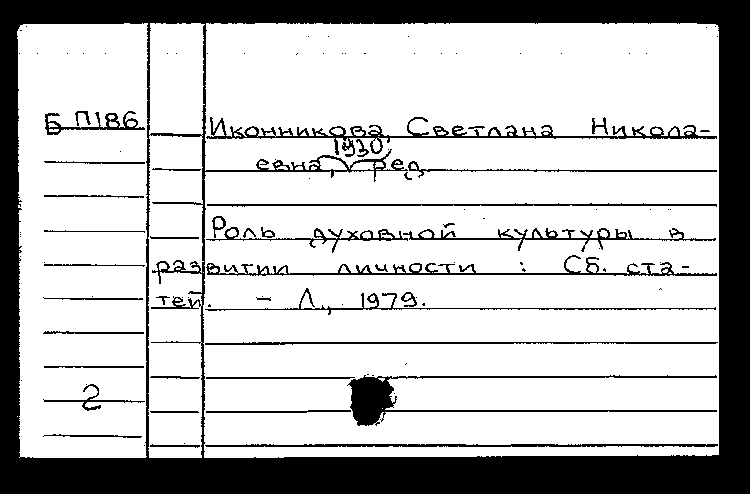 Б П186
Иконникова, Светлана Никола-
1930
евна, ред.
Роль духовной культуры в
развитии личности : Сб. ста-
тей. – Л., 1979.
2